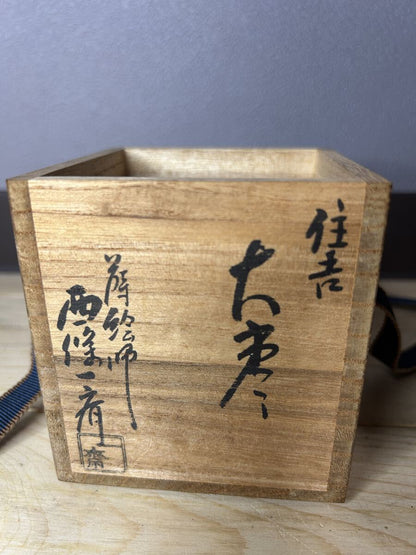 住吉
大棗
蒔絵師
西條一斎
斎